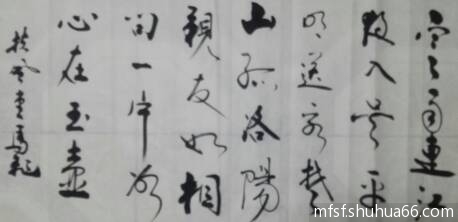 寒雨連江
夜入吴平
明送客楚
山孤洛陽
親友如相
问一片冰
心在玉壶
扶风
mfsf.shuhua66.com